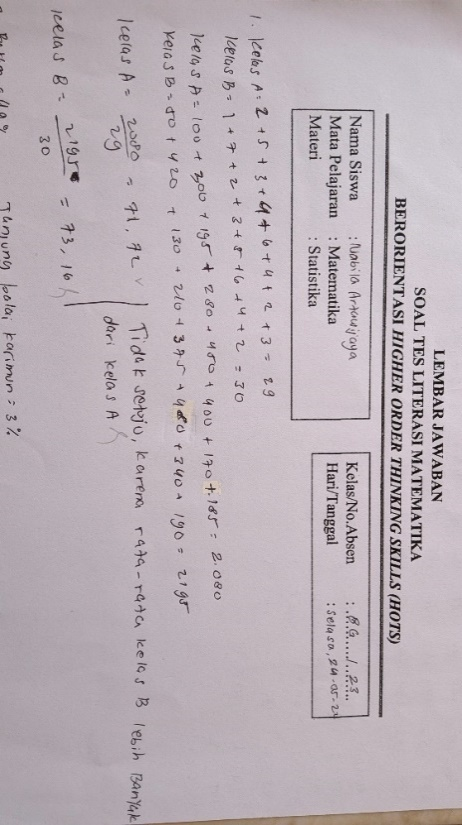 LEMBAR JAWABAN
SOAL TES LITERASI MATEMATIKA
BERORIENTASI HIGHER ORDER THINKING SKILLS (HOTS)
Nama Siswa : Nabila Artawijaya
Mata Pelajaran : Matematika
Materi : Statistika
Kelas/No.Absen : 8G / 23
Hari/Tanggal : Selasa, 24-05-2
1. Kelas A = 2 + 5 + 3 + 4 + 6 + 4 + 2 + 3 = 29
Kelas B = 1 + 7 + 2 + 3 + 5 + 6 + 4 + 2 = 30
Kelas A = 100 + 300 + 195 + 280 + 450 + 400 + 170 + 185 = 2.080
Kelas B = 50 + 420 + 130 + 210 + 375 + 480 + 340 + 190 = 2195
Kelas A = 2080/29 = 71,72
Kelas B = 2195/30 = 73,16
Tidak setuju, karena rata-rata kelas B lebih Banyak
dari kelas A
Tanjung balai karimun = 3 %